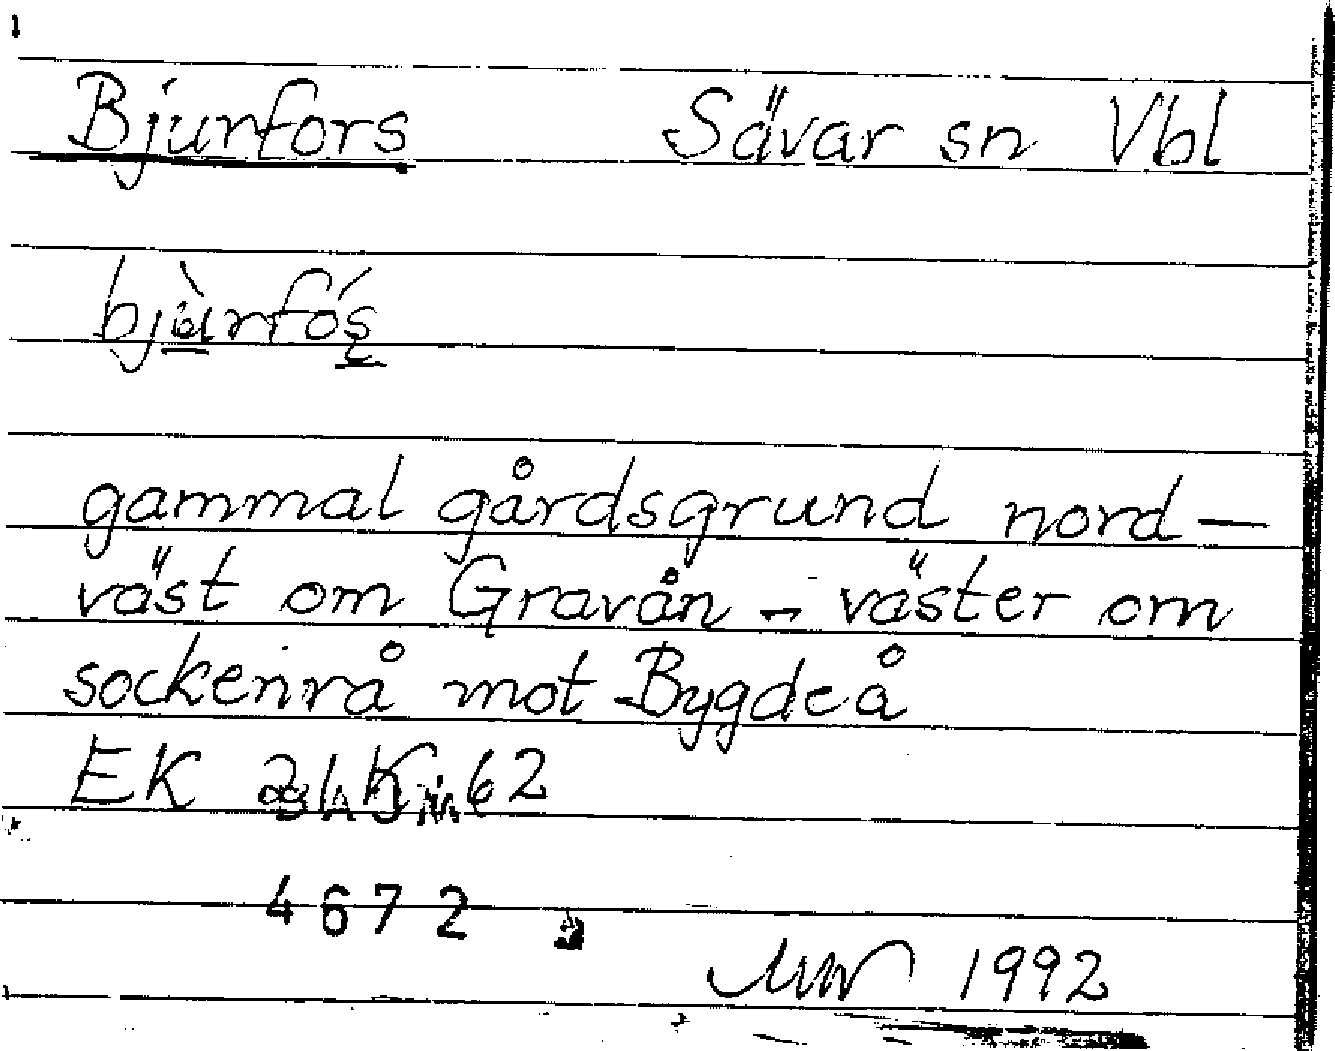 Bjurfors Sävar sn Vbl
bjùrfó̱s̱
gammal gårdsgrund nord-
väst om Gravån - väster om
sockenrå mot Bygdeå
EK 62
4672
1992